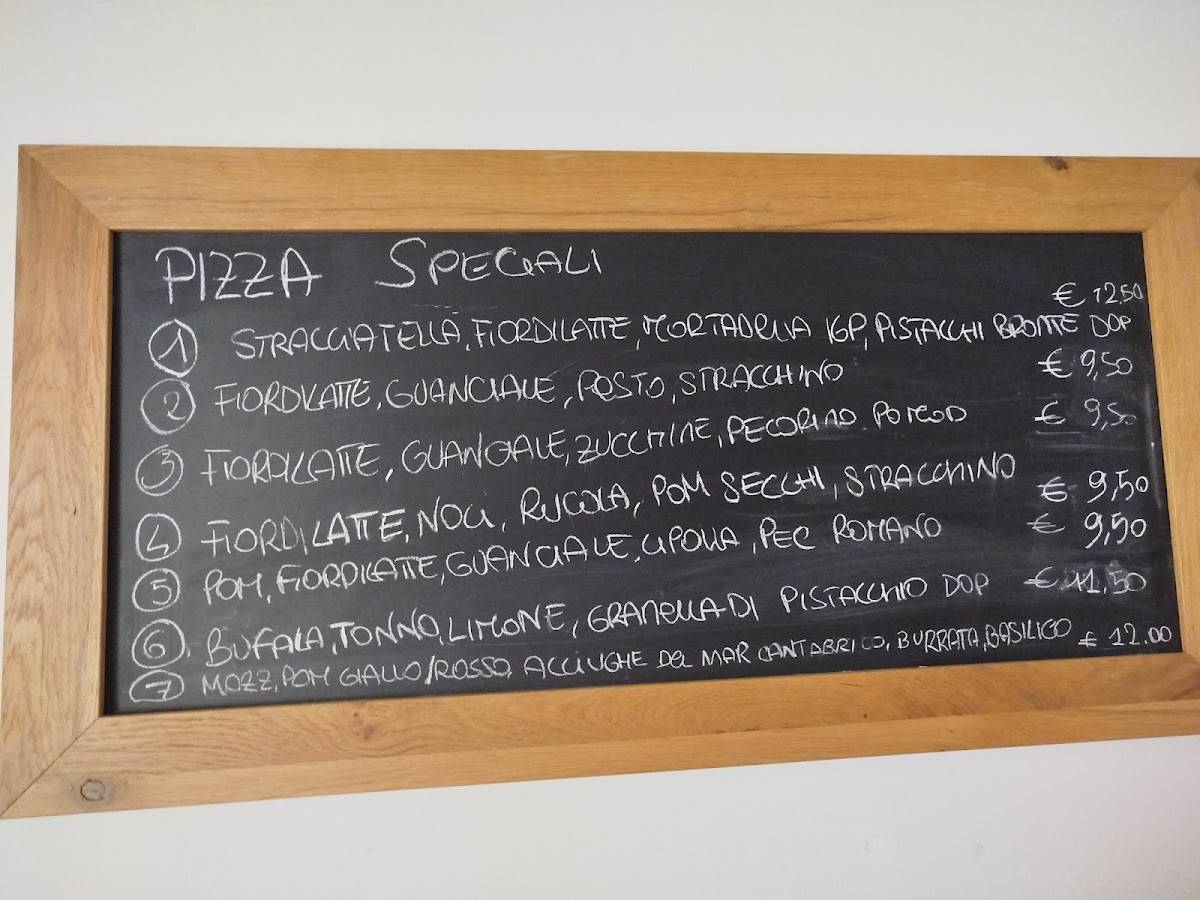 PIZZA SPECIALI
€ 12,50
1 STRACCIATELLA, FIORDILATTE, MORTADELLA IGP, PISTACCHI BRONTE DOP
2 FIORDILATTE, GUANCIALE, PESTO, STRACCHINO € 9,50
3 FIORDILATTE, GUANCIALE, ZUCCHINE, PECORINO POMOD € 9,50
4 FIORDILATTE, NOCI, RUCOLA, POM SECCHI, STRACCHINO € 9,50
5 POM, FIORDILATTE, GUANCIALE, CIPOLLA, PEC ROMANO € 9,50
6 BUFALA, TONNO, LIMONE, GRANELLA DI PISTACCHIO DOP € 11,50
7 MOZZ, POM GIALLO/ROSSO, ACCIUGHE DEL MAR CANTABRICO, BURRATA, BASILICO € 12.00